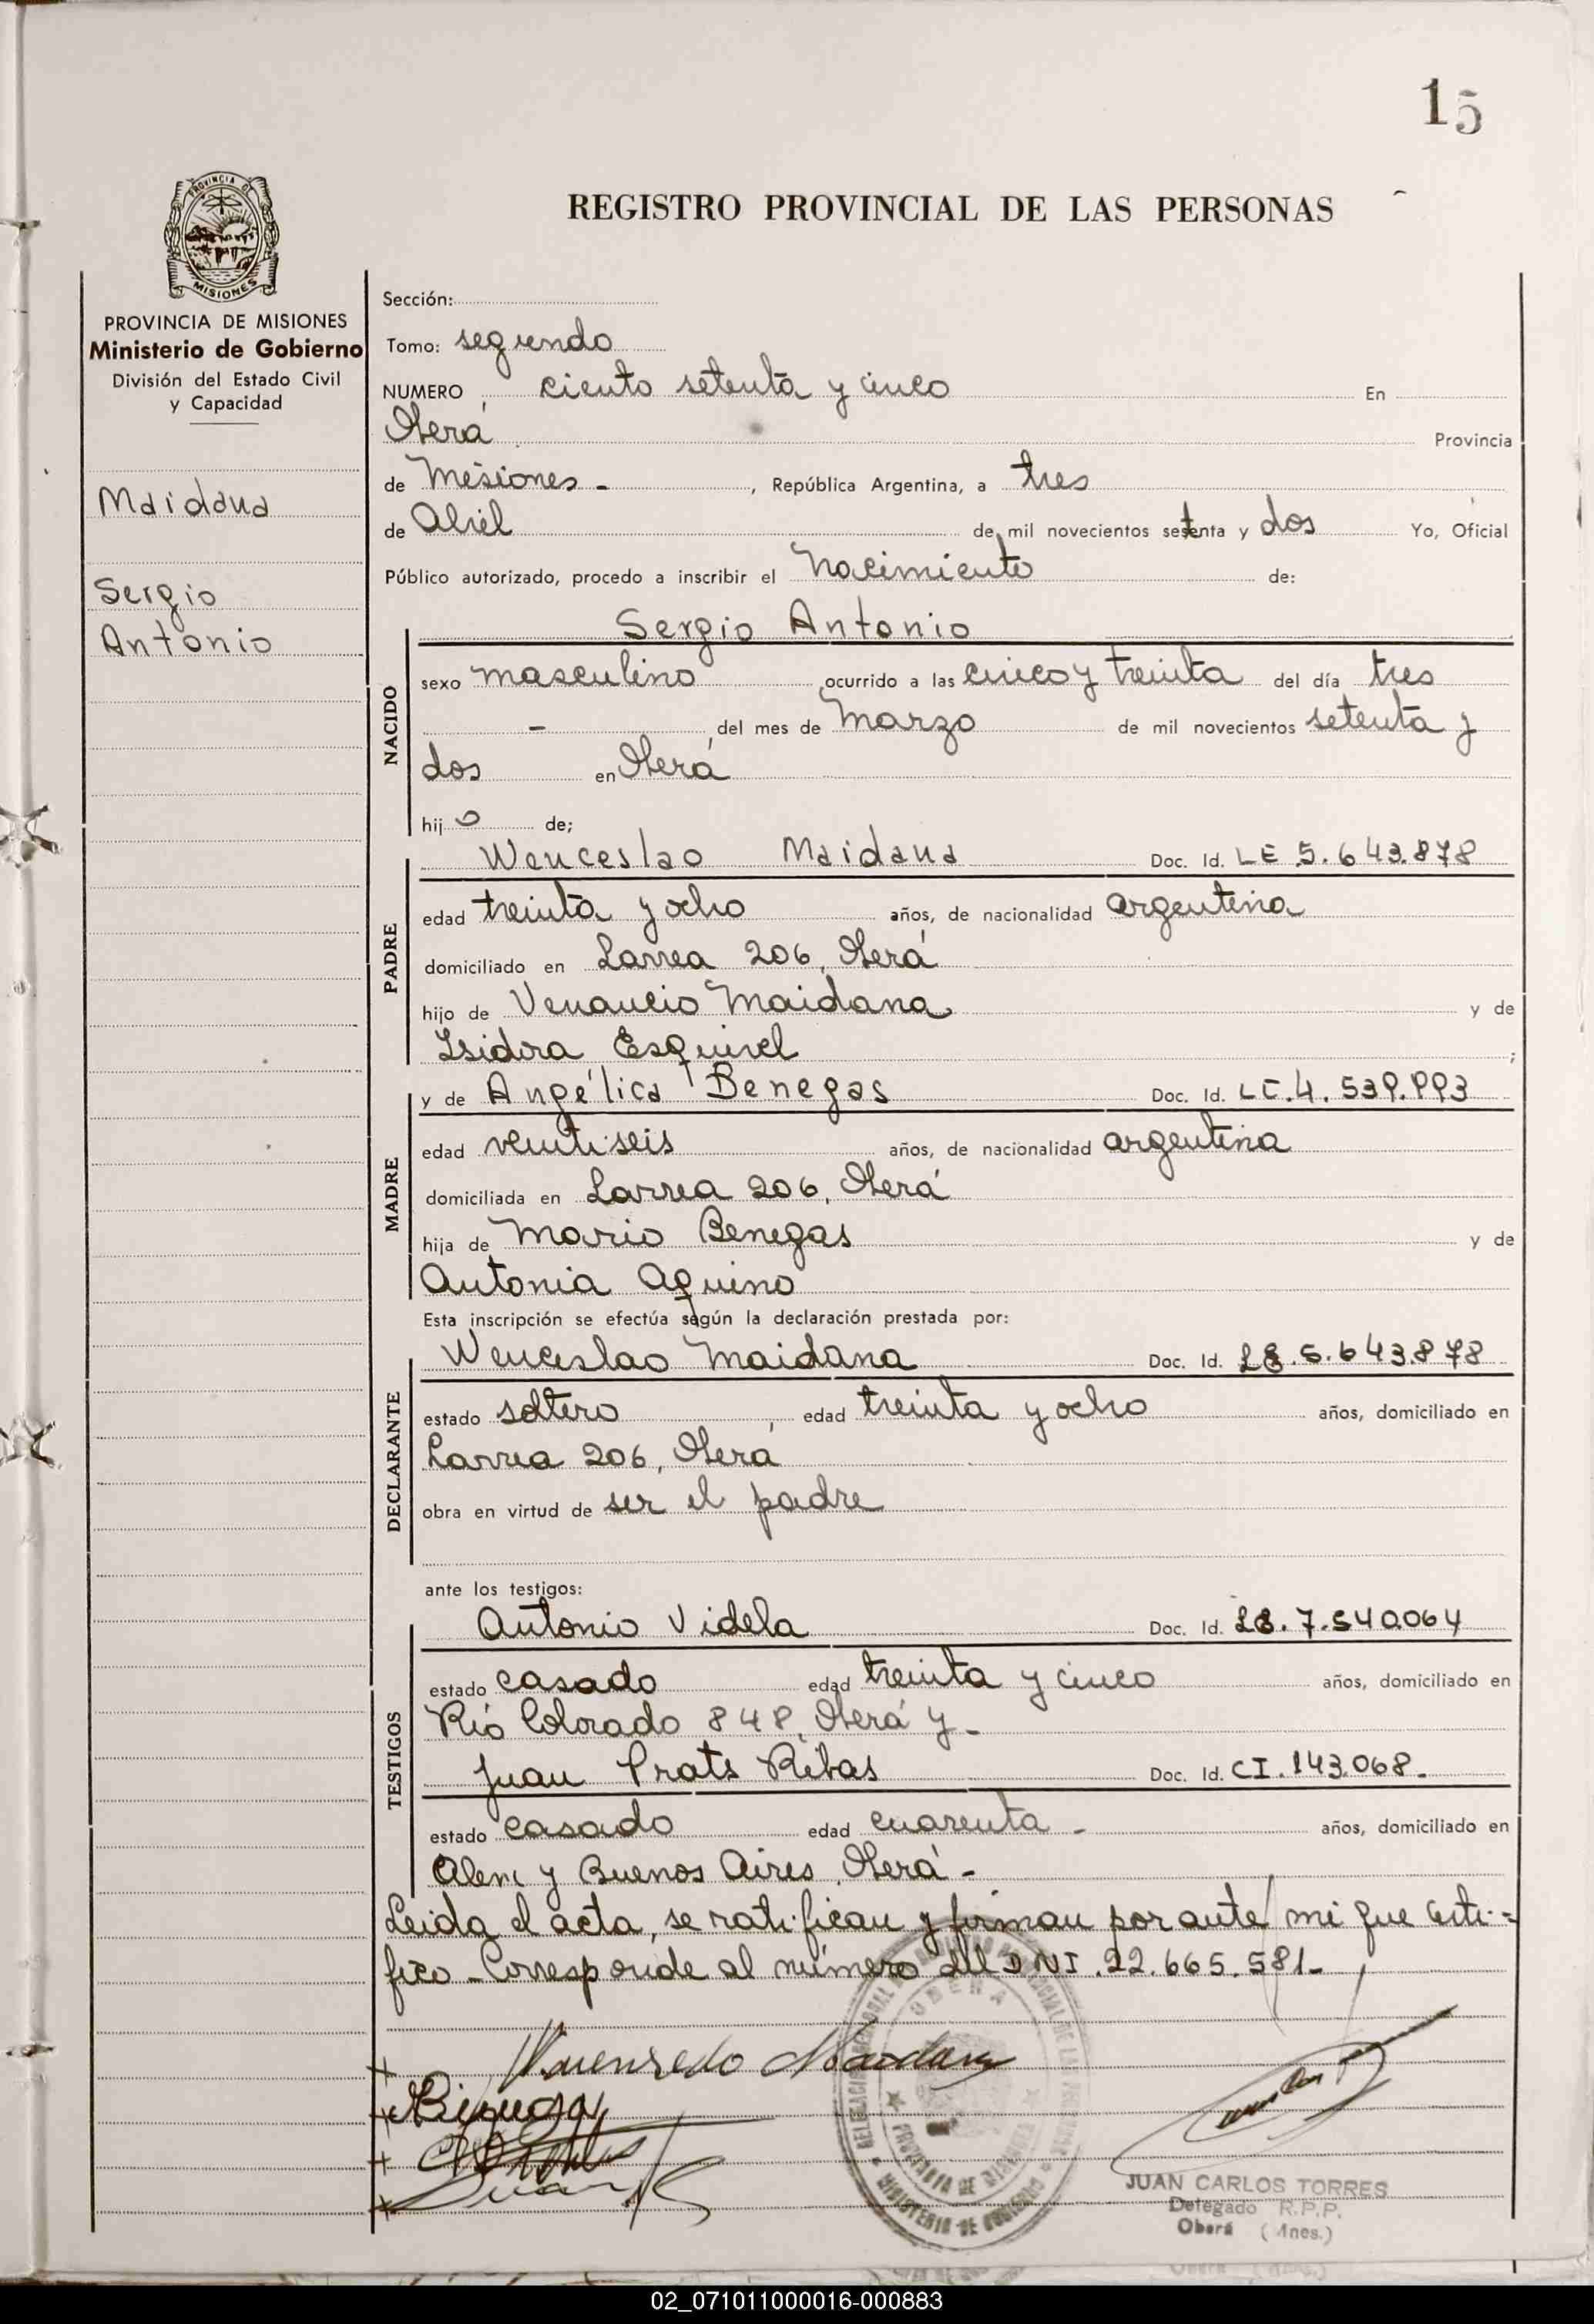 15
REGISTRO PROVINCIAL DE LAS PERSONAS
PROVINCIA DE MISIONES
Ministerio de Gobierno
División del Estado Civil
y Capacidad
Maidana
Sergio
Antonio
Sección:
Tomo: segundo
NUMERO ciento setenta y cinco En
Oberá Provincia
de Misiones - , República Argentina, a tres
de Abril de mil novecientos setenta y dos Yo, Oficial
Público autorizado, procedo a inscribir el nacimiento de:
NACIDO
Sergio Antonio
sexo masculino ocurrido a las cinco y treinta del día tres
- del mes de marzo de mil novecientos setenta y
dos en Oberá
hijo de;
PADRE
Wenceslao Maidana Doc. Id. LE 5.643.878
edad treinta y ocho años, de nacionalidad argentina
domiciliado en Larrea 206, Oberá
hijo de Venancio Maidana y de
Isidora Esquivel ;
MADRE
y de Angélica Benegas Doc. Id. LC.4.539.993
edad veintiseis años, de nacionalidad argentina
domiciliada en Larrea 206, Oberá
hija de Mario Benegas y de
Antonia Aquino
Esta inscripción se efectúa según la declaración prestada por:
DECLARANTE
Wenceslao Maidana Doc. Id. LE.5.643.878
estado soltero, edad treinta y ocho años, domiciliado en
Larrea 206, Oberá
obra en virtud de ser el padre
ante los testigos:
TESTIGOS
Antonio Videla Doc. Id. LE.7.540.064
estado casado edad treinta y cinco años, domiciliado en
Río Colorado 848, Oberá y -
Juan Prats Ribas Doc. Id. CI.143.068.-
estado casado edad cuarenta - años, domiciliado en
Alem y Buenos Aires, Oberá -
Leida el acta, se ratifican y firman por ante mi que certi-
fico - Corresponde al número del DNI.22.665.581-
OBERA
PROVINCIA DE MISIONES
MINISTERIO DE GOBIERNO
JUAN CARLOS TORRES
Delegado R.P.P.
Oberá (Mnes.)
02_071011000016-000883